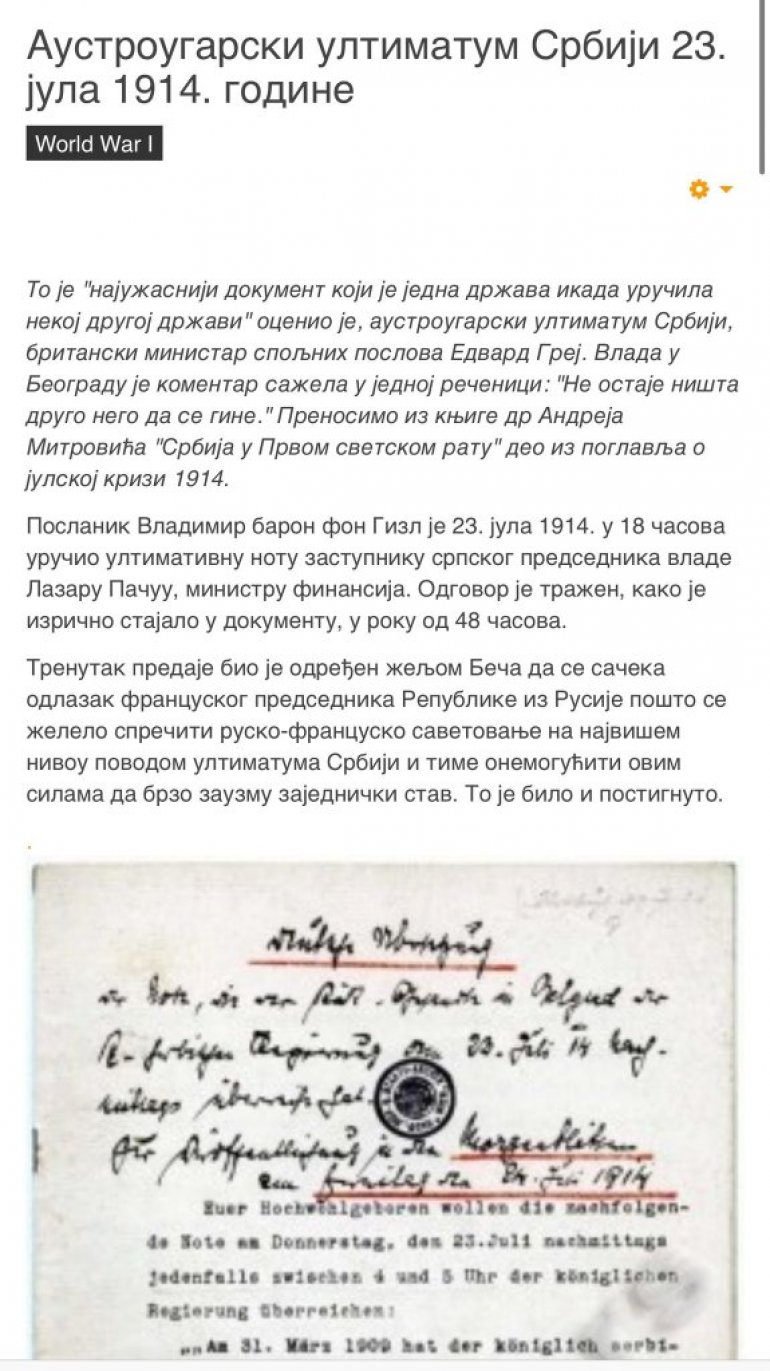 Аустроугарски ултиматум Србији 23.
јула 1914. године
World War I
То је "најужаснији документ који је једна држава икада уручила
некој другој држави" оценио је, аустроугарски ултиматум Србији,
британски министар спољних послова Едвард Греј. Влада у
Београду је коментар сажела у једној реченици: "Не остаје ништа
друго него да се гине." Преносимо из књиге др Андреја
Митровића "Србија у Првом светском рату" део из поглавља о
јулској кризи 1914.
Посланик Владимир барон фон Гизл је 23. јула 1914. у 18 часова
уручио ултимативну ноту заступнику српског председника владе
Лазару Пачуу, министру финансија. Одговор је тражен, како је
изрично стајало у документу, у року од 48 часова.
Тренутак предаје био је одређен жељом Беча да се сачека
одлазак француског председника Републике из Русије пошто се
желело спречити руско-француско саветовање на највишем
нивоу поводом ултиматума Србији и тиме онемогућити овим
силама да брзо заузму заједнички став. То је било и постигнуто.
Deutsche Übersetzung
der Note, die der in Belgrad der
Regierung am 23. Juli 14 Nach-
mittags überreicht hat.
Für Veröffentlichung in den Morgenblättern
am Freitag den 24. Juli 1914
Euer Hochwohlgeboren wollen die nachfolgen-
de Note am Donnerstag, den 23.Juli nachmittags
jedenfalls zwischen 4 und 5 Uhr der königlichen
Regierung überreichen:
„„Am 31. März 1909 hat der königlich serbi-